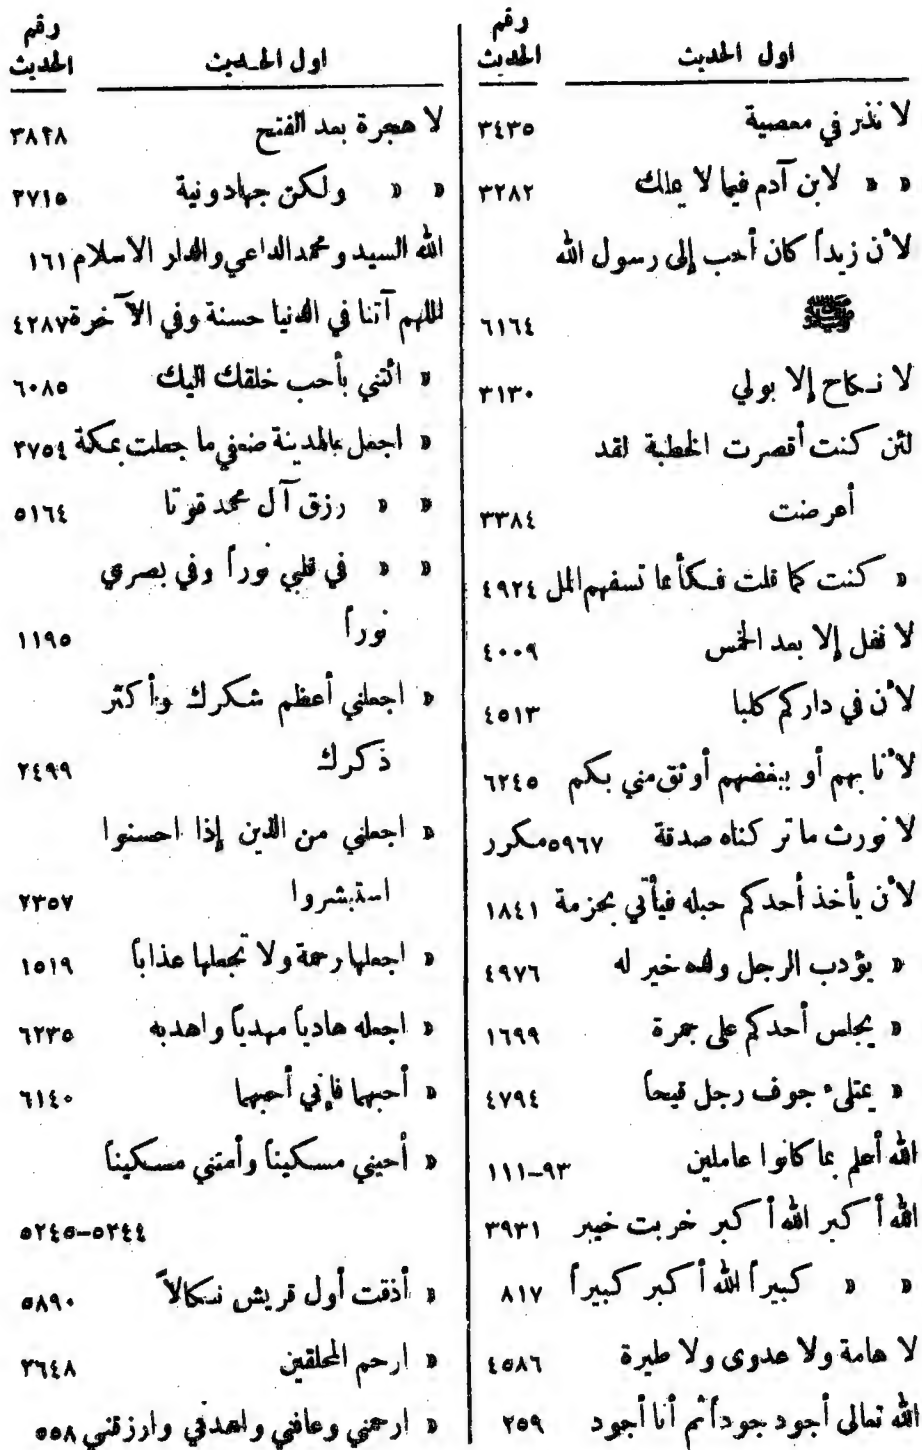 اول الحديث رقم الحديث
لا نذر في معصية ٣٤٣٥
» » لابن آدم فيما لا يملك ٣٢٨٢
لأن زيداً كان أحب إلى رسول الله
ﷺ ٦١٦٤
لا نكاح إلا بولي ٣١٣٠
لئن كنت أقصرت الخطبة لقد
أعرضت ٣٣٨٤
» كنت كما قلت فكأنما تسفهم المل ٤٩٢٤
لا نفل إلا بعد الخمس ٤٠٠٩
لأن في داركم كلبا ٤٥١٣
لأنا بهم أو ببعضهم أوثق مني بكم ٦٢٤٥
لا نورث ما تركناه صدقة ٥٩٦٧ مكرر
لأن يأخذ أحدكم حبله فيأتي بحزمة ١٨٤١
» يؤدب الرجل ولده خير له ٤٩٧٦
» يجلس أحدكم على جمرة ١٦٩٩
» يمتلىء جوف رجل قيحاً ٤٧٩٤
الله أعلم بما كانوا عاملين ٩٣-١١١
الله أكبر الله أكبر خربت خيبر ٣٩٣١
» » كبيراً الله أكبر كبيراً ٨١٧
لا هامة ولا عدوى ولا طيرة ٤٥٨٦
الله تعالى أجود جوداً ثم أنا أجود ٢٥٩
اول الحديث رقم الحديث
لا هجرة بعد الفتح ٣٨٢٨
» » ولكن جهاد ونية ٢٧١٥
الله السيد ومحمد الداعي والدار الاسلام ١٦١
اللهم آتنا في الدنيا حسنة وفي الآخرة ٤٢٨٧
» ائتني بأحب خلقك اليك ٦٠٨٥
» اجعل بالمدينة ضعفي ما جعلت بمكة ٢٧٥٤
» » رزق آل محمد قوتا ٥١٦٤
» » في قلبي نوراً وفي بصري
نوراً ١١٩٥
» اجعلني أعظم شكرك وأكثر
ذكرك ٢٤٩٩
» اجعلني من الذين إذا احسنوا
استبشروا ٢٣٥٧
» اجعلها رحمة ولا تجعلها عذاباً ١٥١٩
» اجعله هادياً مهدياً واهد به ٦٢٣٥
» أحبهما فإني أحبهما ٦١٤٠
» أحيني مسكيناً وأمتني مسكيناً
٥٢٤٤-٥٢٤٥
» أذقت أول قريش نكالاً ٥٨٩٠
» ارحم المحلقين ٢٦٤٨
» ارحمني وعافني واهدني وارزقني ٥٥٨